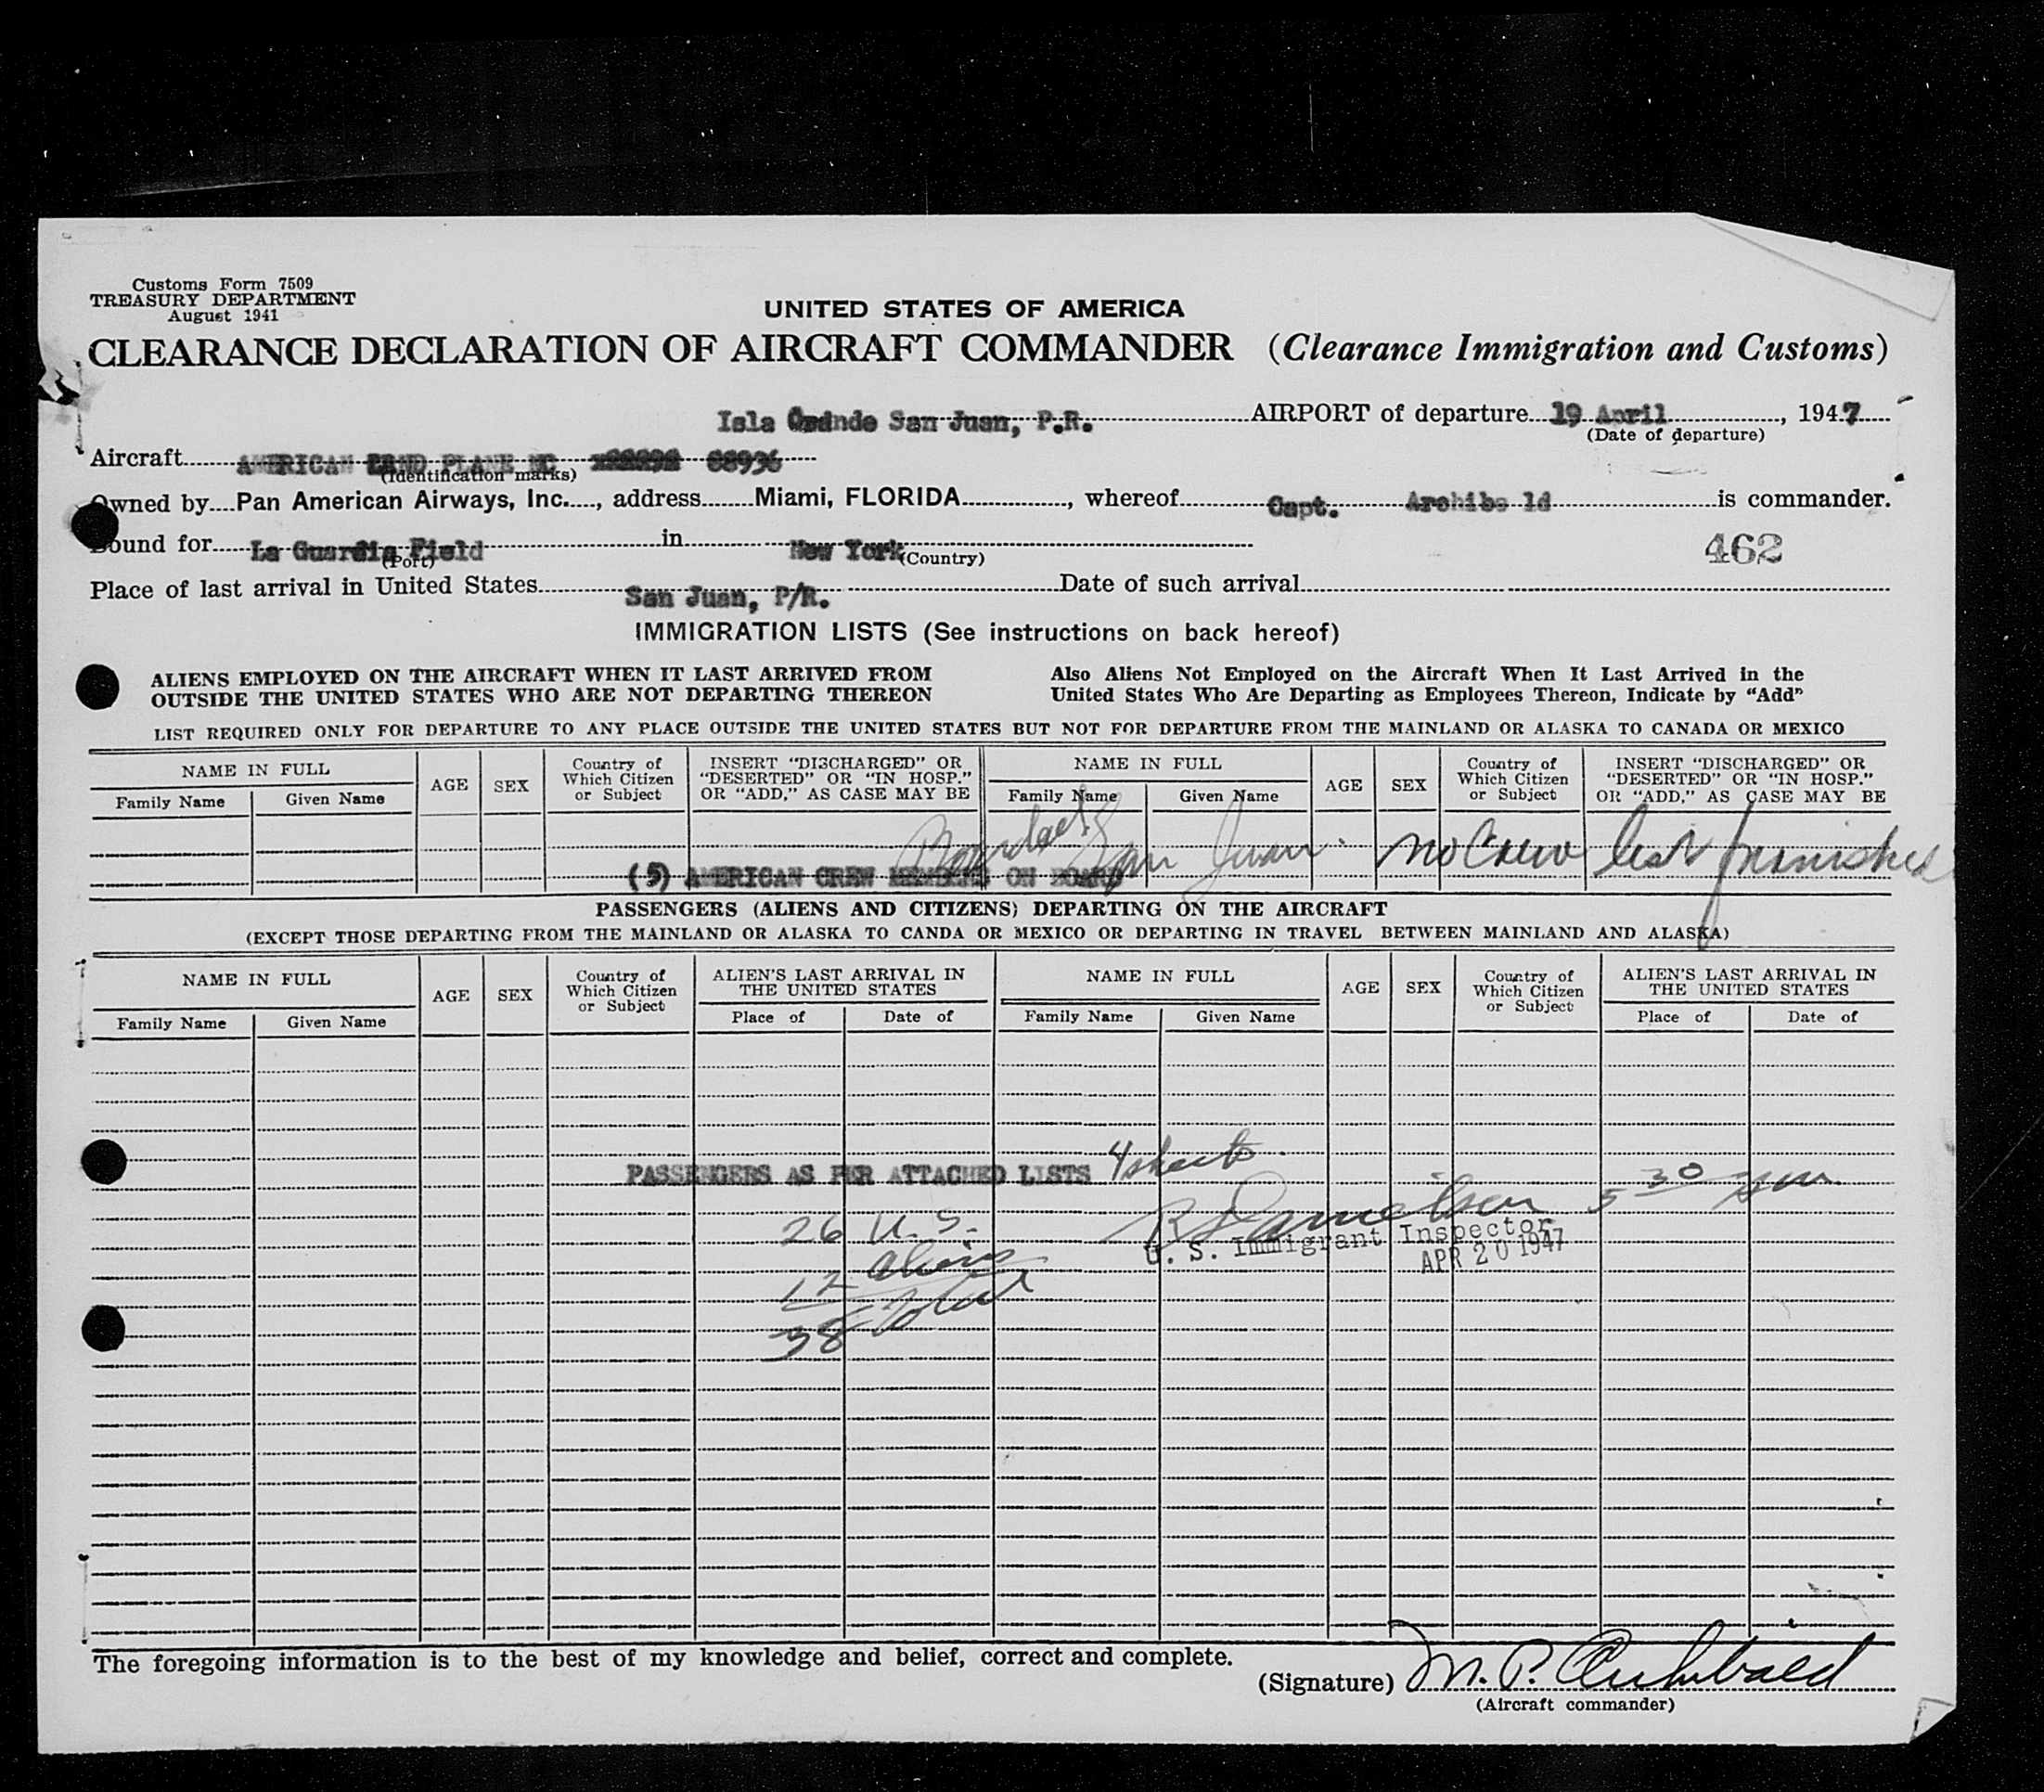 Customs Form 7509
TREASURY DEPARTMENT
August 1941
UNITED STATES OF AMERICA
CLEARANCE DECLARATION OF AIRCRAFT COMMANDER (Clearance Immigration and Customs)
Isla Grande San Juan, P.R. AIRPORT of departure 19 April, 1947
(Date of departure)
Aircraft AMERICAN LAND PLANE NC 88936
(Identification marks)
Owned by Pan American Airways, Inc., address Miami, FLORIDA, whereof Capt. Archiba ld is commander.
Bound for La Guardia Field in New York
(Port) (Country)
462
Place of last arrival in United States San Juan, P/R. Date of such arrival
IMMIGRATION LISTS (See instructions on back hereof)
ALIENS EMPLOYED ON THE AIRCRAFT WHEN IT LAST ARRIVED FROM
OUTSIDE THE UNITED STATES WHO ARE NOT DEPARTING THEREON
Also Aliens Not Employed on the Aircraft When It Last Arrived in the
United States Who Are Departing as Employees Thereon, Indicate by “Add”
LIST REQUIRED ONLY FOR DEPARTURE TO ANY PLACE OUTSIDE THE UNITED STATES BUT NOT FOR DEPARTURE FROM THE MAINLAND OR ALASKA TO CANADA OR MEXICO
NAME IN FULL
Family Name Given Name
AGE
SEX
Country of
Which Citizen
or Subject
INSERT “DISCHARGED” OR
“DESERTED” OR “IN HOSP.”
OR “ADD,” AS CASE MAY BE
NAME IN FULL
Family Name Given Name
AGE
SEX
Country of
Which Citizen
or Subject
INSERT “DISCHARGED” OR
“DESERTED” OR “IN HOSP.”
OR “ADD,” AS CASE MAY BE
San Juan. No Crew list furnished
(5) AMERICAN CREW MEMBERS ON BOARD
PASSENGERS (ALIENS AND CITIZENS) DEPARTING ON THE AIRCRAFT
(EXCEPT THOSE DEPARTING FROM THE MAINLAND OR ALASKA TO CANDA OR MEXICO OR DEPARTING IN TRAVEL BETWEEN MAINLAND AND ALASKA)
NAME IN FULL
Family Name Given Name
AGE
SEX
Country of
Which Citizen
or Subject
ALIEN'S LAST ARRIVAL IN
THE UNITED STATES
Place of Date of
NAME IN FULL
Family Name Given Name
AGE
SEX
Country of
Which Citizen
or Subject
ALIEN'S LAST ARRIVAL IN
THE UNITED STATES
Place of Date of
PASSENGERS AS PER ATTACHED LISTS 4 sheets
R Danielson 5 30
26 U.S.
U. S. Immigrant Inspector
APR 20 1947
12 Aliens
38 Total
The foregoing information is to the best of my knowledge and belief, correct and complete.
(Signature) M. P. Archibald
(Aircraft commander)